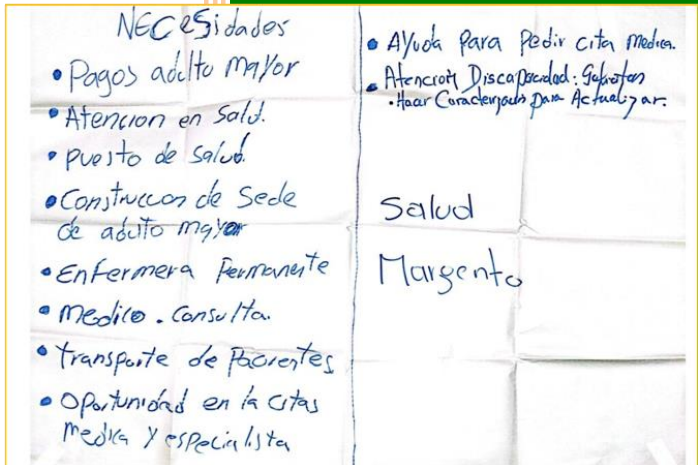 NECESidades
• Pagos adulto mayor
• Atencion en Salud.
• puesto de Salud.
• Construccion de Sede
de adulto mayor
• Enfermera Permanente
• Medico. Consulta.
• transporte de Pacientes
• Oportunidad en la citas
medica y especialista
• Ayuda para Pedir cita medica.
• Atencion Discapacidad:
• Hacer para Actualizar.
Salud
Margento